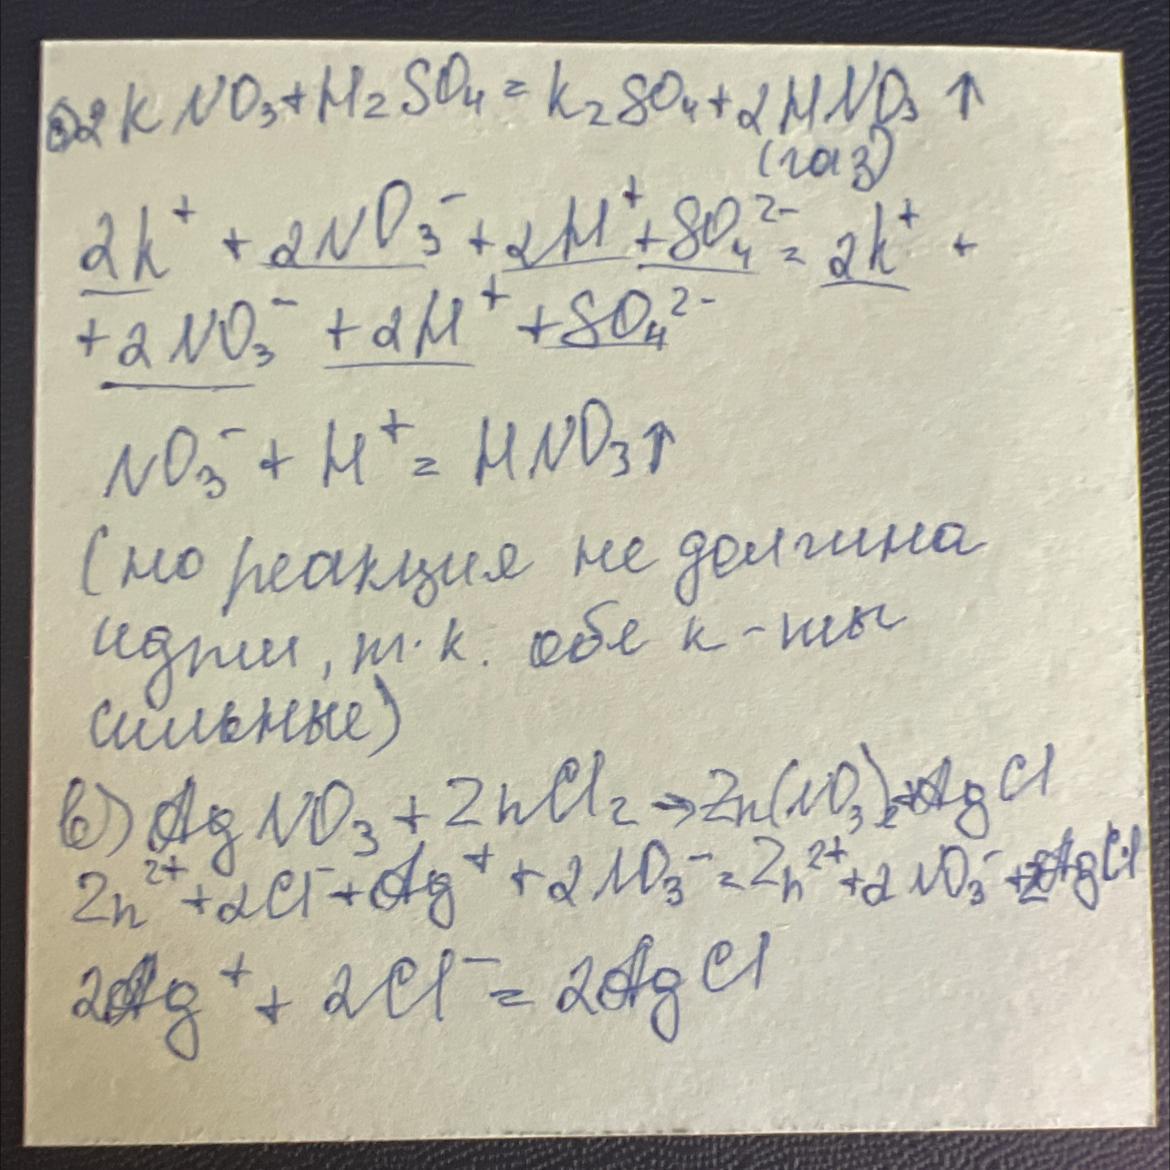 а) 2KNO₃ + H₂SO₄ = K₂SO₄ + 2HNO₃ ↑
(газ)
2K⁺ + 2NO₃⁻ + 2H⁺ + SO₄²⁻ = 2K⁺ +
+ 2NO₃⁻ + 2H⁺ + SO₄²⁻
NO₃⁻ + H⁺ = HNO₃↑
(но реакция не должна
идти, т.к. обе к-ты
сильные)
в) AgNO₃ + ZnCl₂ → Zn(NO₃)₂ + AgCl
Zn²⁺ + 2Cl⁻ + Ag⁺ + 2NO₃⁻ = Zn²⁺ + 2NO₃⁻ + 2AgCl
2Ag⁺ + 2Cl⁻ = 2AgCl